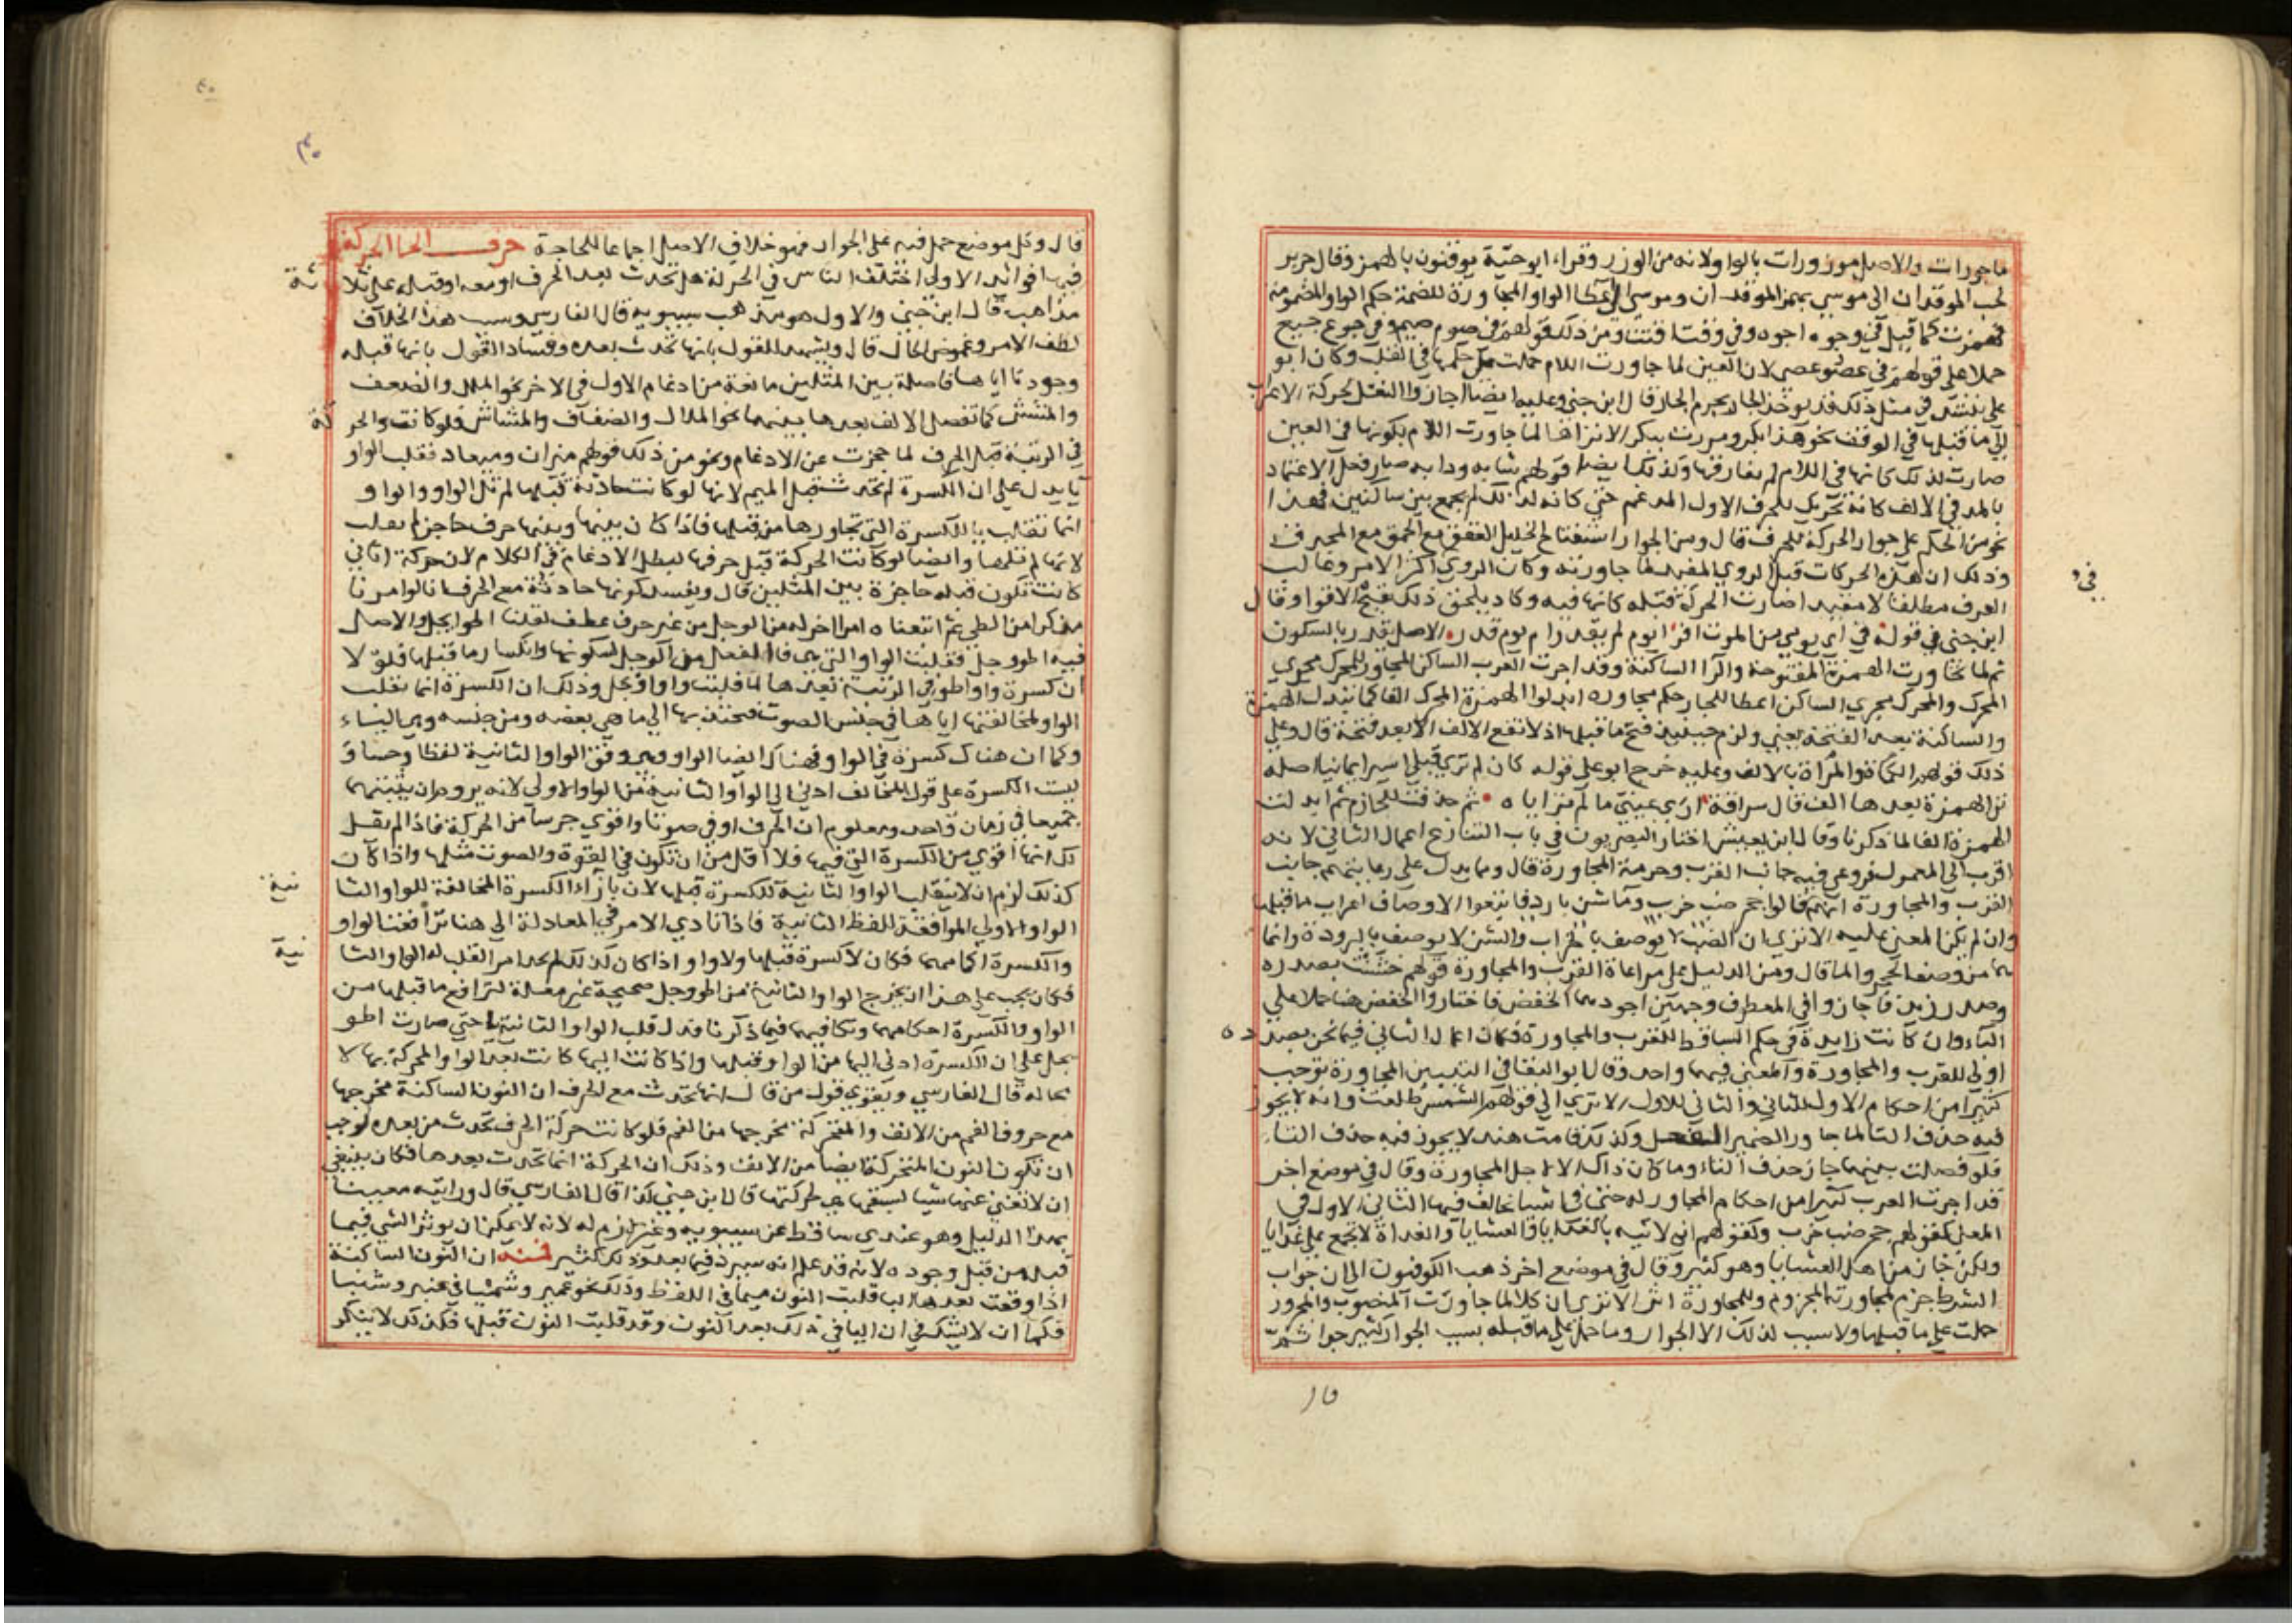 ماجورات والاصل موزورات بالواو لانه من الوزر وقراء ابوحية يوقنون بالهمز وقال جرير
لحب الموقدان الى موسي بهمز الموقدان وموسي اعطا الواو المجاورة للضمة حكم الواو المضمومة
فهمزت كما قيل في وجوه اجوه وفي وقتت اقتت ومن ذلك قولهم في صوم صيم وفي جوع جيع
حملا على قولهم في عصو عصي لان العين لما جاورت اللام حملت على حكمها في القلب وكان ابو
علي ينشد في مثل ذلك قد يوخذ الجار بجرم الجار قال ابن جني وعليه ايضا اجازوا النقل لحركة الاعراب
الي ما قبلها في الوقف نحو هذا بكر ومررت ببكر الا تراها لما جاورت اللام بكونها في العين
صارت لذلك كانها في اللام لم يفارقها وكذلك ايضا قولهم شابه ودابه صار فضل الاعتماد
بالمد في الالف كانه تحريك للحرف الاول المدغم حتي كانه لذلك لم يجمع بين ساكنين فهذا
نحو من الحكم على جوار الحركة للحرف قال ومن الجوار استقباح الخليل العقق مع الحمق مع المخترق
وذلك ان هذه الحركات قبل الروي المقيد لما جاورته وكان الروي في اكثر الامر وغالب
العرف مطلقا لا مقيدا صارت الحركة قبله كانها فيه وكاد يلحق ذلك بقبح الاقوا وقال
ابن جني في قوله في اي يومي من الموت افر ايوم لم يقدر ام يوم قدر الاصل يقدر بالسكون
ثم لما تجاورت الهمزة المفتوحة والرا الساكنة وقد اجرت العرب الساكن المجاور للمحرك مجري
المحرك والمحرك مجري الساكن اعطا للجار حكم مجاوره ابدلوا الهمزة المحركة الفا كما تبدل الهمزة
الساكنة بعد الفتحة يعني ولزم حينئذ فتح ما قبلها اذ لا تقع الالف الا بعد فتحة قال وعلي
ذلك قولهم الكماة والمراة بالالف وعليه خرج ابو علي قوله كان لم تري قبلي اسيرا يمانيا اصله
ترا بهمزة بعدها الف قال سراقة اري عيني ما لم تراياه ثم حذفت للجازم ثم ابدلت
الهمزة الفا لما ذكرنا وقال ابن يعيش اختار البصريون في باب التنازع اعمال الثاني لانه
اقرب الى المعمول فروعي فيه جانب القرب وحرمة المجاورة قال ومما يدل على رعايتهم جانب
القرب والمجاورة انهم قالوا جحر ضب خرب وماشن بارد فاتبعوا الاوصاف اعراب ما قبلها
وان لم يكن المعنى عليه الا تري ان الضب لا يوصف بالخراب والشن لا يوصف بالبرودة وانما
هما من وصف الحجر والما قال ومن الدليل على مراعاة القرب والمجاورة قولهم خشنت بصدره
وصدر زيد فاجازوا في المعطوف وجهين اجودهما الخفض فاختاروا الخفض هنا حملا علي
الباء وان كانت زايدة في حكم الساقط للقرب والمجاورة فكان اعمال الثاني فيما نحن بصدده
اولى للقرب والمجاورة والمعنى فيهما واحد وقال ابو البقا في التبيين المجاورة توجب
كثيرا من احكام الاول للثاني والثاني للاول الا تري الى قولهم الشمس طلعت وانه لا يجوز
فيه حذف التا لما جاور الضمير الفعل وكذلك قامت هند لا يجوز فيه حذف التاء
فلو فصلت بينهما جاز حذف التاء وما كان ذاك الا لاجل المجاورة وقال في موضع اخر
قد اجرت العرب كثيرا من احكام المجاور له حتى في اشيا يخالف فيها الثاني الاول في
المعنى كقولهم جحر ضب خرب وكقولهم اني لاتيه بالغدايا والعشايا والغداة لا تجمع على غدايا
ولكن جاز من اجل العشايا وهو كثير وقال في موضع اخر ذهب الكوفيون الى ان جواب
الشرط جزم لمجاورته المجزوم وللمجاورة اثر الا تري ان كلالما جاورت المنصوب والمجرور
حملت على ما قبلها ولا سبب لذلك الا الجوار وما حمل على ما قبله بسبب الجوار كثير جدا ثم
في
قال وكل موضع حمل فيه على الجوار فهو خلاف الاصل اجماعا للحاجة حرف الحا الحركة
فيها فوائد الاولى اختلف الناس في الحركة هل تحدث بعد الحرف او معه او قبله على ثلاثة
مذاهب قال ابن جني والاول هو مذهب سيبويه قال الفارسي وسبب هذا الخلاف
لطف الامر وغموض الحال قال ويشهد للقول بانها تحدث بعده وفساد القول بانها قبله
وجودنا اياها فاصلة بين المثلين مانعة من ادغام الاول في الاخر نحو الملل والضعف
والمشش كما تفصل الالف بعدها بينهما نحو الملال والضفاف والمشاش فلو كانت والحركة
في الرتبة قبل الحرف لما حجزت عن الادغام ونحو من ذلك قولهم ميزان وميعاد فقلب الواو
يا يدل على ان الكسرة لم تحدث قبل الميم لانها لو كانت حادثة قبلها لم تل الواو والواو
انما تقلب بالكسرة التي تجاورها من قبلها فاذا كان بينها وبينها حرف حاجز لم تقلب
لانها لم تلها وايضا لو كانت الحركة قبل حرفها لبطل الادغام في الكلام لان حركة الثاني
كانت تكون قبله حاجزة بين المثلين قال ويفسد كونها حادثة مع الحرف انا لو امرنا
مذكرا من الطي ثم اتبعناه امرا اخر له من الوجل من غير حرف عطف لقلنا اطوايجل والاصل
فيه اطو وجل فقلبت الواو التي هي فا الفعل من الوجل لسكونها وانكسار ما قبلها فلولا
ان كسرة واو اطو في الرتبة بعدها لما قلبت واو اوجل وذلك ان الكسرة انما تقلب
الواو لمخالفتها اياها في جنس الصوت فتجذبها الى ما هي بعضه ومن جنسه وهي الياء
وكما ان هناك كسرة في الواو فهناك ايضا الواو وهي وفق الواو الثانية لفظا وحسا و
ليست الكسرة على قول المخالف ادنى الى الواو الثانية من الواو الاولى لانه يروم ان يثبتهما
جميعا في زمان واحد ومعلوم ان الحرف اوفى صوتا واقوى جرسا من الحركة فاذا لم يقل
لك انها اقوى من الكسرة التي فيها فلا اقل من ان تكون في القوة والصوت مثلها واذا كان
كذلك لزم ان لا تنقلب الواو الثانية للكسرة قبلها لان بازاء الكسرة المخالفة للواو الثانية
الواو الاولى الموافقة للفظ الثانية فاذا تادى الامر في المعادلة الى هنا ترافعت الواو
والكسرة احكامهما فكان لا كسرة قبلها ولا واو واذا كان كذلك لم تجد امر القلب له الواو الثانية
فكان يجب على هذا ان تخرج الواو الثانية من اطو وجل صحيحة غير معلة لترافع ما قبلها من
الواو والكسرة احكامهما وتكافيهما فيما ذكرنا فدل قلب الواو الثانية يا حتى صارت اطو
يجل على ان الكسرة ادنى اليها من الواو قبلها واذا كانت اليها كانت بعد الواو المحركة بها لا
محالة قال الفارسي ويقوي قول من قال انها تحدث مع الحرف ان النون الساكنة مخرجها
مع حروف الفم من الانف والمتحركة مخرجها من الفم فلو كانت حركة الحرف تحدث من بعده لوجب
ان تكون النون المتحركة ايضا من الانف وذلك ان الحركة انما تحدث بعدها فكان ينبغي
ان لا تغني عنها شيا لسبقها هي لحركتها قال ابن جني كذا قال الفارسي قال ورايته معيبا
بهذا الدليل وهو عندي ساقط عن سيبويه وغير لازم له لانه لا يمكن ان يوثر الشي فيما
قبله من قبل وجوده لانه قد علم انه سيرد فيما بعد وذلك كثير فمنه ان النون الساكنة
اذا وقعت بعدها الب قلبت النون ميما في اللفظ وذلك نحو عمبر وشمبا في عنبر وشنبا
فكما ان لا يشك في ان البا في ذلك بعد النون وقد قلبت النون قبلها فكذلك لا ينكر